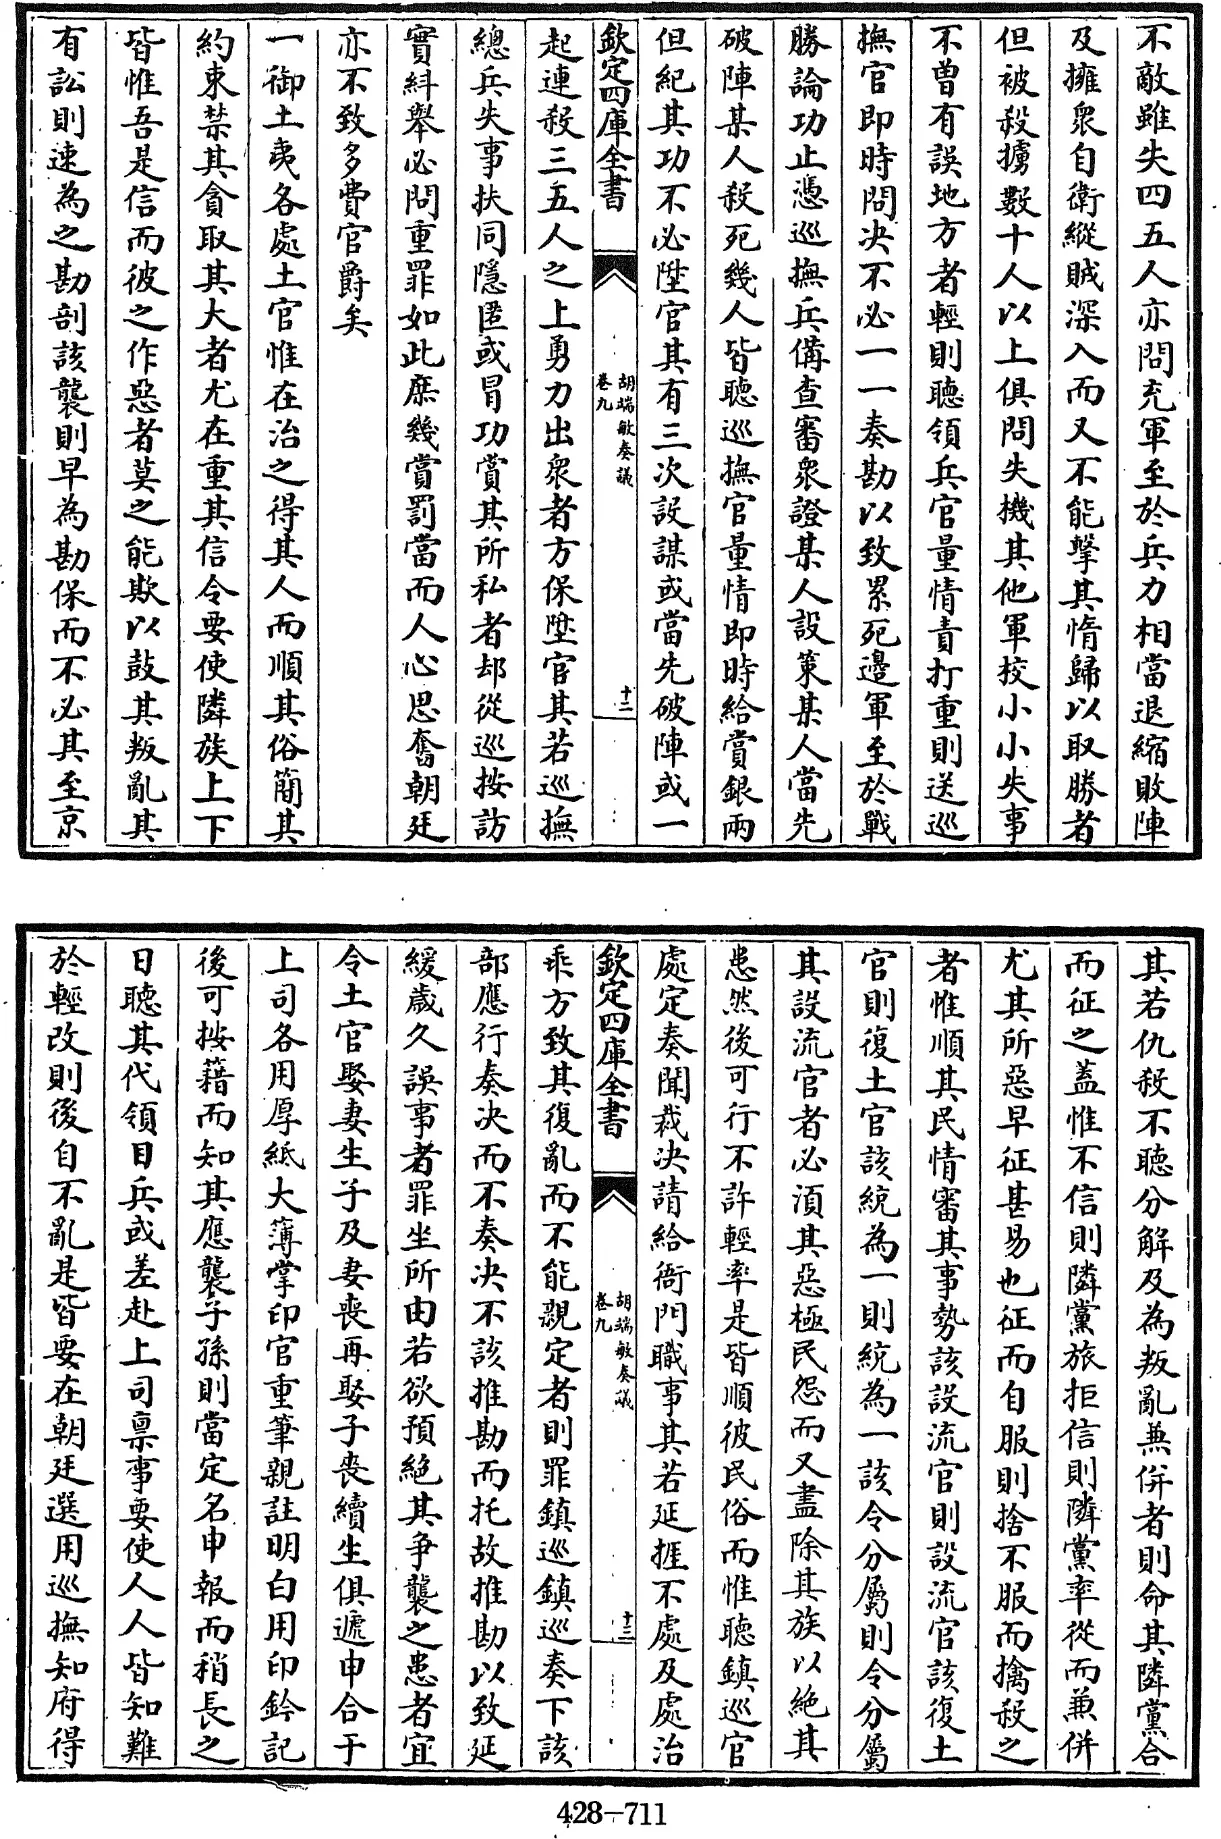 不敵雖失四五人亦問充軍至於兵力相當退縮敗陣
及擁衆自衛縱賊深入而又不能擊其惰歸以取勝者
但被殺擄數十人以上俱問失機其他軍校小小失事
不曽有誤地方者輕則聽領兵官量情責打重則送巡
撫官即時問决不必一一奏勘以致累死邊軍至於戰
勝論功止憑巡撫兵備查審衆證某人設策某人當先
破陣某人殺死幾人皆聽巡撫官量情即時給賞銀兩
但紀其功不必陞官其有三次設謀或當先破陣或一
欽定四庫全書
胡端敏奏議
卷九
十二
起連殺三五人之上勇力出衆者方保陞官其若巡撫
總兵失事扶同隱匿或冒功賞其所私者却從巡按訪
實糾舉必問重罪如此庶幾賞罰當而人心思奮朝廷
亦不致多費官爵矣
一御土夷各處土官惟在治之得其人而順其俗簡其
約束禁其貪取其大者尤在重其信令要使隣族上下
皆惟吾是信而彼之作惡者莫之能欺以鼓其叛亂其
有訟則速為之勘剖該襲則早為勘保而不必其至京
其若仇殺不聽分解及為叛亂兼併者則命其隣黨合
而征之蓋惟不信則隣黨旅拒信則隣黨率從而兼併
尤其所惡早征甚易也征而自服則捨不服而擒殺之
者惟順其民情審其事勢該設流官則設流官該復土
官則復土官該統為一則統為一該令分屬則令分屬
其設流官者必湏其惡極民怨而又盡除其族以絶其
患然後可行不許輕率是皆順彼民俗而惟聽鎮巡官
處定奏聞裁决請給衙門職事其若延捱不處及處治
欽定四庫全書
胡端敏奏議
卷九
十三
乖方致其復亂而不能親定者則罪鎮巡鎮巡奏下該
部應行奏决而不奏决不該推勘而托故推勘以致延
緩歲久誤事者罪坐所由若欲預絶其爭襲之患者宜
令土官娶妻生子及妻喪再娶子喪續生俱遞申合于
上司各用厚紙大簿掌印官重筆親註明白用印鈐記
後可按籍而知其應襲子孫則當定名申報而稍長之
日聽其代領目兵或差赴上司禀事要使人人皆知難
於輕改則後自不亂是皆要在朝廷選用巡撫知府得
428-711